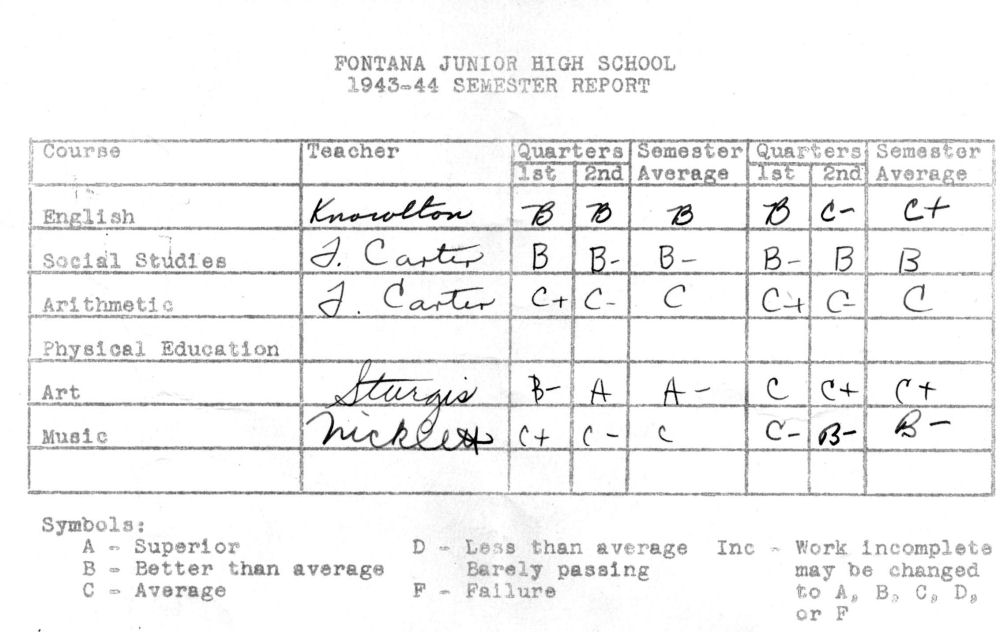 FONTANA JUNIOR HIGH SCHOOL
1943-44 SEMESTER REPORT
Course Teacher Quarters Semester Quarters Semester
1st 2nd Average 1st 2nd Average
English Knowlton B B B B C- C+
Social Studies J. Carter B B- B- B- B B
Arithmetic J. Carter C+ C- C C+ C- C
Physical Education
Art Sturgis B- A A- C C+ C+
Music Nicklett C+ C- C C- B- B-
Symbols:
A - Superior D - Less than average Inc - Work incomplete
B - Better than average Barely passing may be changed
C - Average F - Failure to A, B, C, D,
or F